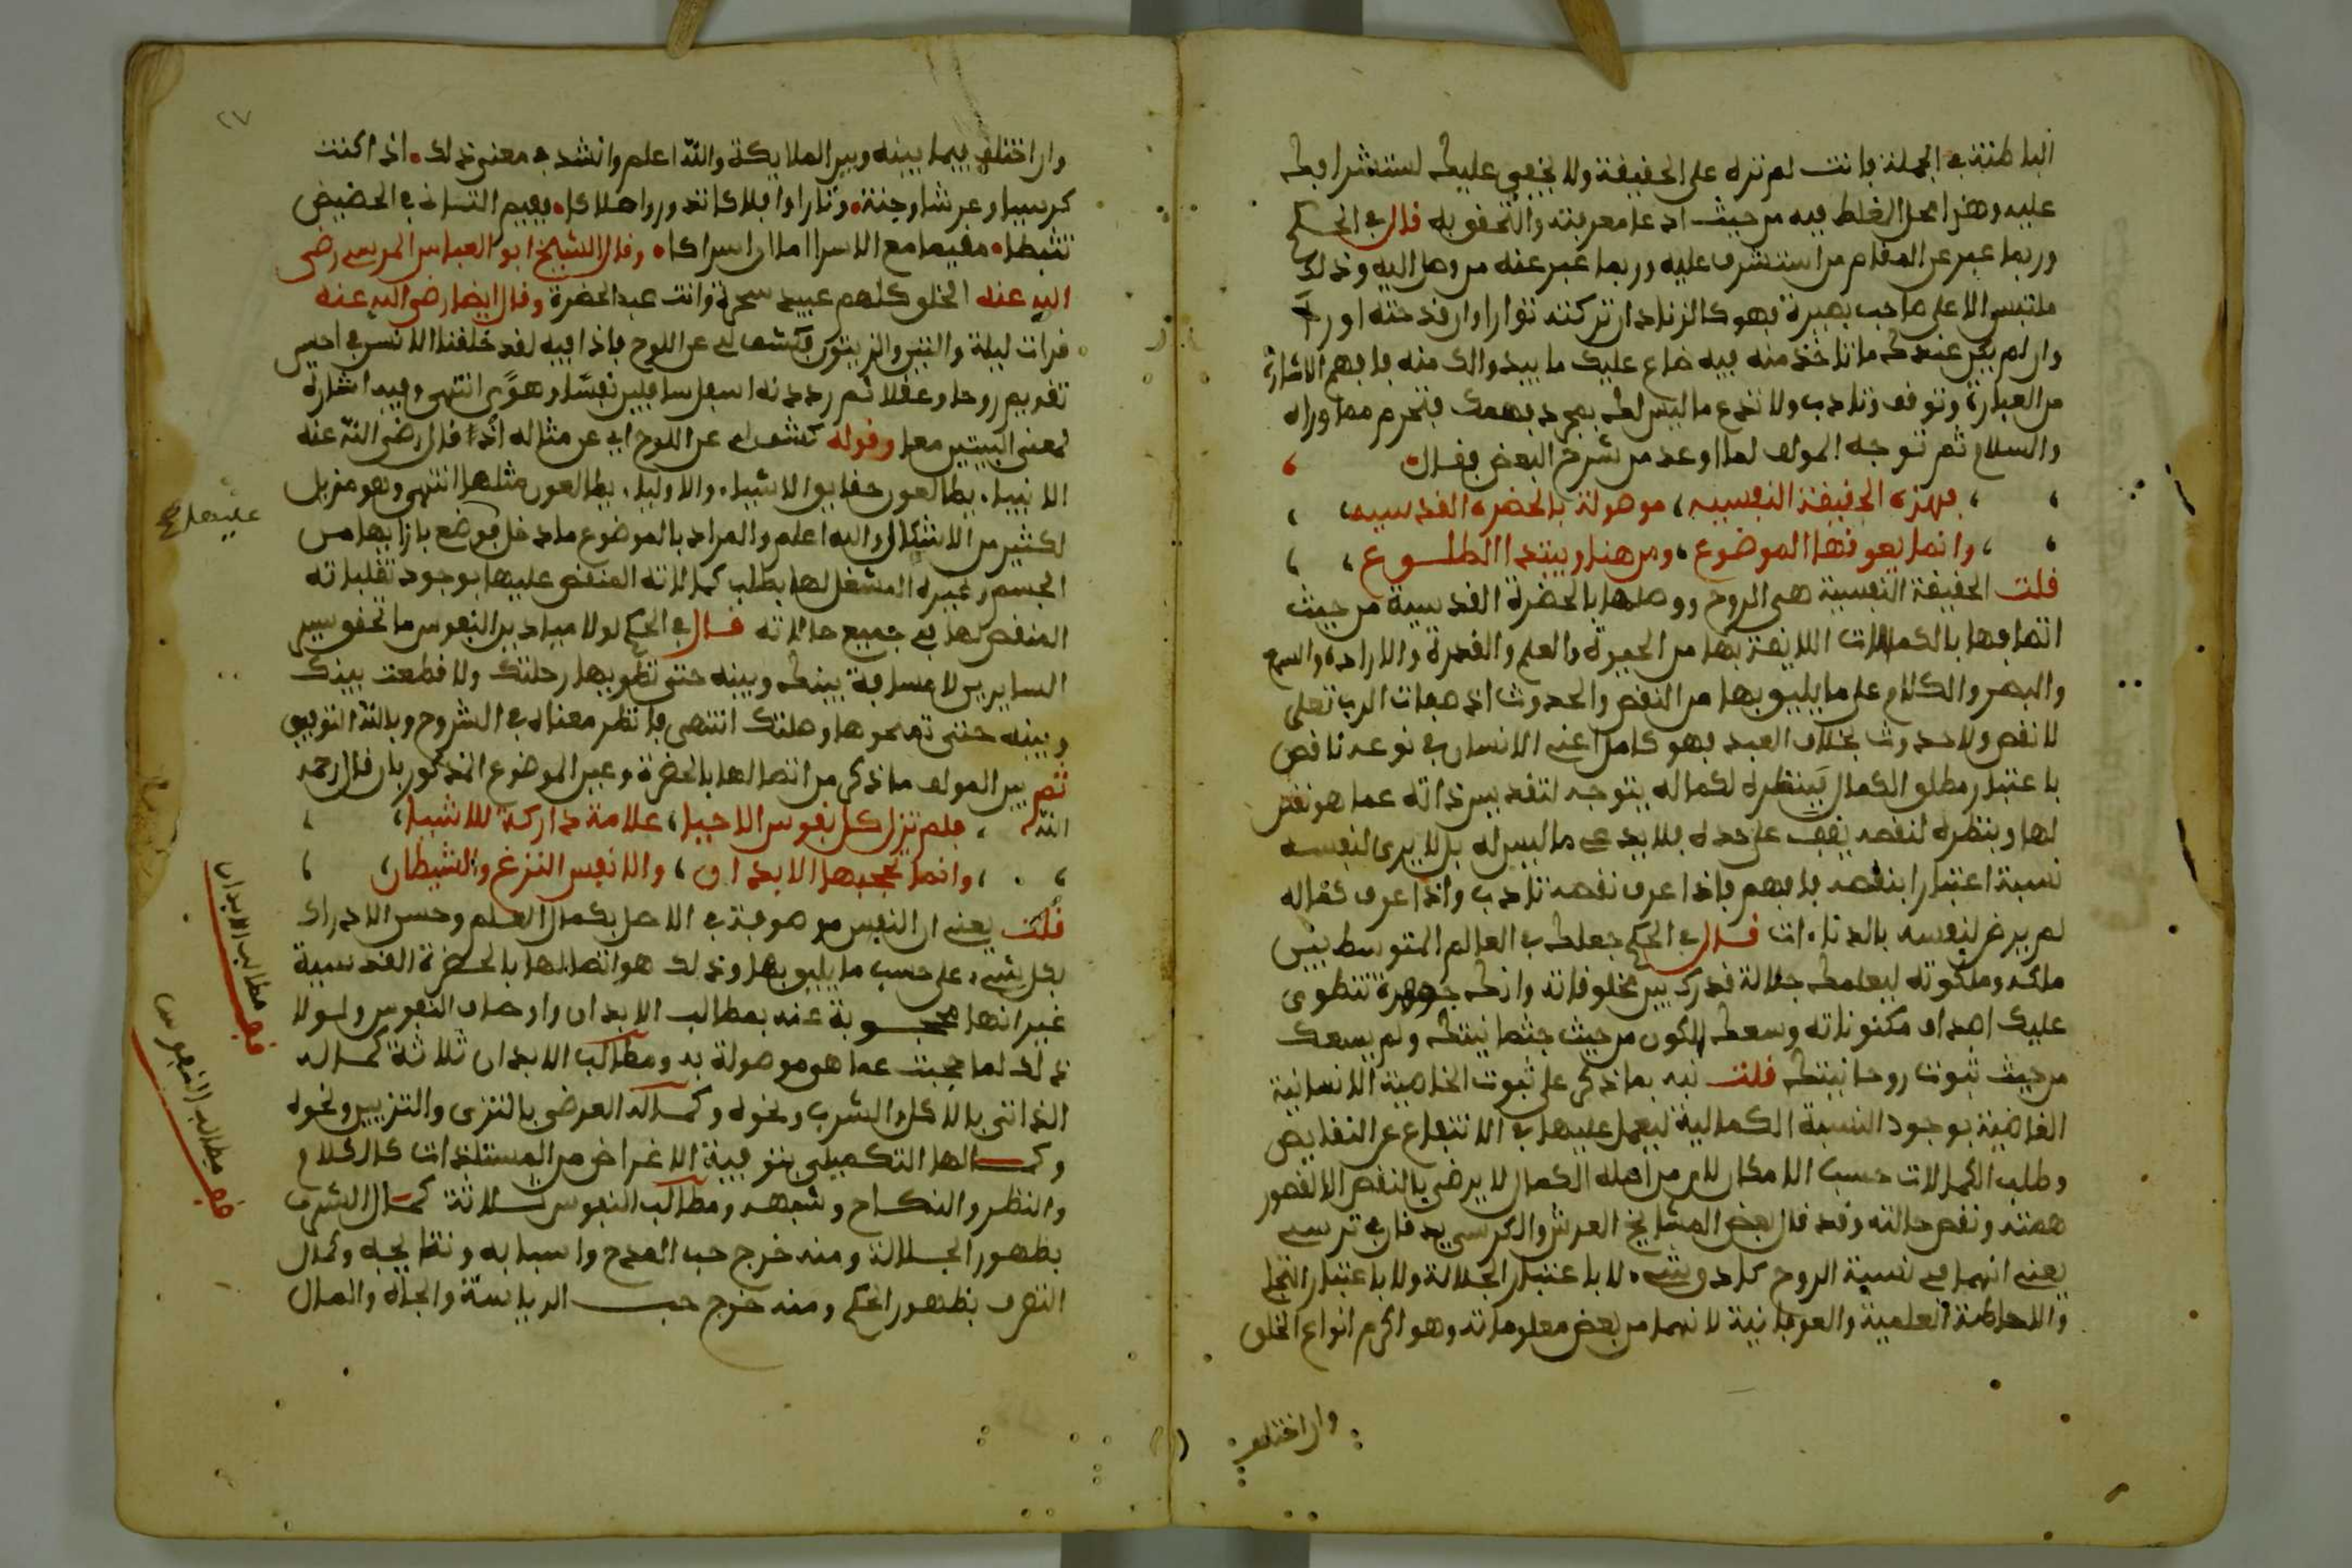 الباطنية في الجملة فانت لم تره على الحقيقة ولا يخفى عليك استشرافك
عليه وهذا محل الغلط فيه من حيث ادعا معرفته والتحقق به قال في الحكم
وربما عبر عن المقام من استشرف عليه وربما عبر عنه من وصل اليه وذلك
ملتبس الا على صاحب بصيرة فهو كالزناد ان تركته توارا وان قدحته اورا
وان لم يكن عندك ما تاخذ منه فيه ضاع عليك ما يبدو الك منه فافهم الاشارة
من العبارة وتوقف وتادب ولا تدع ما ليس لك بمجرد فهمك فتحرم مما وراه
والسلام ثم توجه المولف لما اوعد من شرح البعض فقال
فهذه الحقيقة النفسيه، موصولة بالحضرة القدسيه
وانما يعوقها الموضوع، ومن هنا يبتدا الطلوع
قلت الحقيقة النفسية هي الروح ووصلها بالحضرة القدسية من حيث
اتصافها بالكمالات اللايقة بها من الحيوة والعلم والقدرة والارادة والسمع
والبصر والكلام على ما يليق بها من النقص والحدوث اذ صفات الرب تعلى
لا نقص ولا حدوث بخلاف العبد فهو كامل اعني الانسان في نوعه ناقص
باعتبار مطلق الكمال فبنظره لكماله يتوجه لتقديس ذاته عما هو نقص
لها وبنظره لنقصه يقف على حده فلا يدعي ما ليس له بل لا يرى لنفسه
نسبة اعتبارا بنقصه فافهم فاذا عرف نقصه تادب واذا عرف كماله
لم يرض لنفسه بالدناءات قال في الحكم جعلك في العالم المتوسط بين
ملكه وملكوته ليعلمك جلالة قدرك بين مخلوقاته وانك جوهرة تنطوي
عليك اصداف مكنوناته وسعك الكون من حيث جثمانيتك ولم يسعك
من حيث ثبوت روحانيتك قلت نبه بما ذكر على ثبوت الخاصية الانسانية
القاضية بوجود النسبة الكمالية ليعمل عليها في الانتفاع عن النقايص
وطلب الكمالات حسب الامكان لان من اصله الكمال لا يرضى بالنقص الا لقصور
همته ونقص حالته وقد قال بعض المشايخ العرش والكرسي يدقان في ترسي
يعني انهما في نسبة الروح كلا شيء لا باعتبار الجلالة ولا باعتبار التجلي
والاحاطة العلمية والعرفانية لانهما من بعض معلوماته وهو اكرم انواع الخلق
وان اختلف
٢٧
وان اختلف فيما بينه وبين الملايكة والله اعلم وانشد في معنى ذلك اذا كنت
كرسيا وعرشا وجنة ونارا وافلاكا تدور واملاكا ففيم التساني في الحضيض
تثبطا مقيما مع الاسرا اما ان اسراكا وقال الشيخ ابو العباس المرسي رضي
الله عنه الخلق كلهم عبيد سخرة وانت عبد الحضرة وقال ايضا رضي الله عنه
قرات ليلة والتين والزيتون فكشف لي عن اللوح فاذا فيه لقد خلقنا الانسن في احسن
تقويم روحا وعقلا ثم رددنه اسفل سافلين نفسا وهوى انتهى وفيه اشارة
لمعنى البيتين معا وقوله كشف لي عن اللوح اي عن مثاله اذا قال رضي الله عنه
الانبياء يطالعون حقايق الاشياء والاولياء يطالعون مثلها انتهى وهو مزيل
لكثير من الاشكال والله اعلم والمراد بالموضوع ما دخل فوضع بازايها من
الجسم وغيره المشغل لها بطلب كمالاته المنغص عليها بوجود تقلباته
المنقص لها في جميع حالاته قال في الحكم لولا ميادين النفوس ما تحقق سير
السايرين لا مسافة بينك وبينه حتى تطويها رحلتك ولا قطعت بينك
وبينه حتى تمحوها وصلتك انتهى فانظر معناه في الشروح وبالله التوفيق
ثم بين المولف ما ذكر من اتصالها بالحضرة وعين الموضوع المذكور بان قال رحمه
الله فلم تزل كل نفوس الاحيا، علامة داركة للاشيا
وانما تحجبها الابدان، والانفس النزغ والشيطان
قلت يعني ان النفس موصوفة في الاصل بكمال العلم وحسن الادراك
لكل شيء على حسب ما يليق بها وذلك هو اتصالها بالحضرة القدسية
غير انها محجوبة عنه بمطالب الابدان واوصاف النفوس ولولا
ذلك لما حجبت عما هو موصولة به ومطالب الابدان ثلاثة كماله
الذاتي بالاكل والشرب ونحوه وكماله العرضي بالتزي والتزيين ونحوه
وكمالها التكميلي بتوفية الاغراض من المستلذات كالكلام
والنظر والنكاح وشبهه ومطالب النفوس ثلاثة كمال الشرف
بظهور الجلالة ومنه خرج حب المدح واسبابه ونتايجه وكمال
التصرف بظهور الحكم ومنه خرج حب الرياسة والجاه والمال
عليها صح
قف مطالب الابدان
قف مطالب النفوس